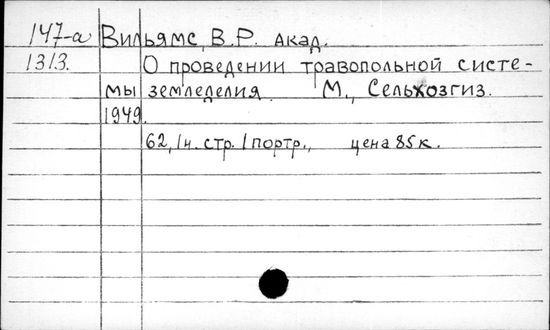 147-а Вильямс, В.Р. акад.
1313. О проведении травопольной систе-
мы земледелия. М., Сельхозгиз.
1949.
62, 1н. стр. 1 портр., цена 85 к.